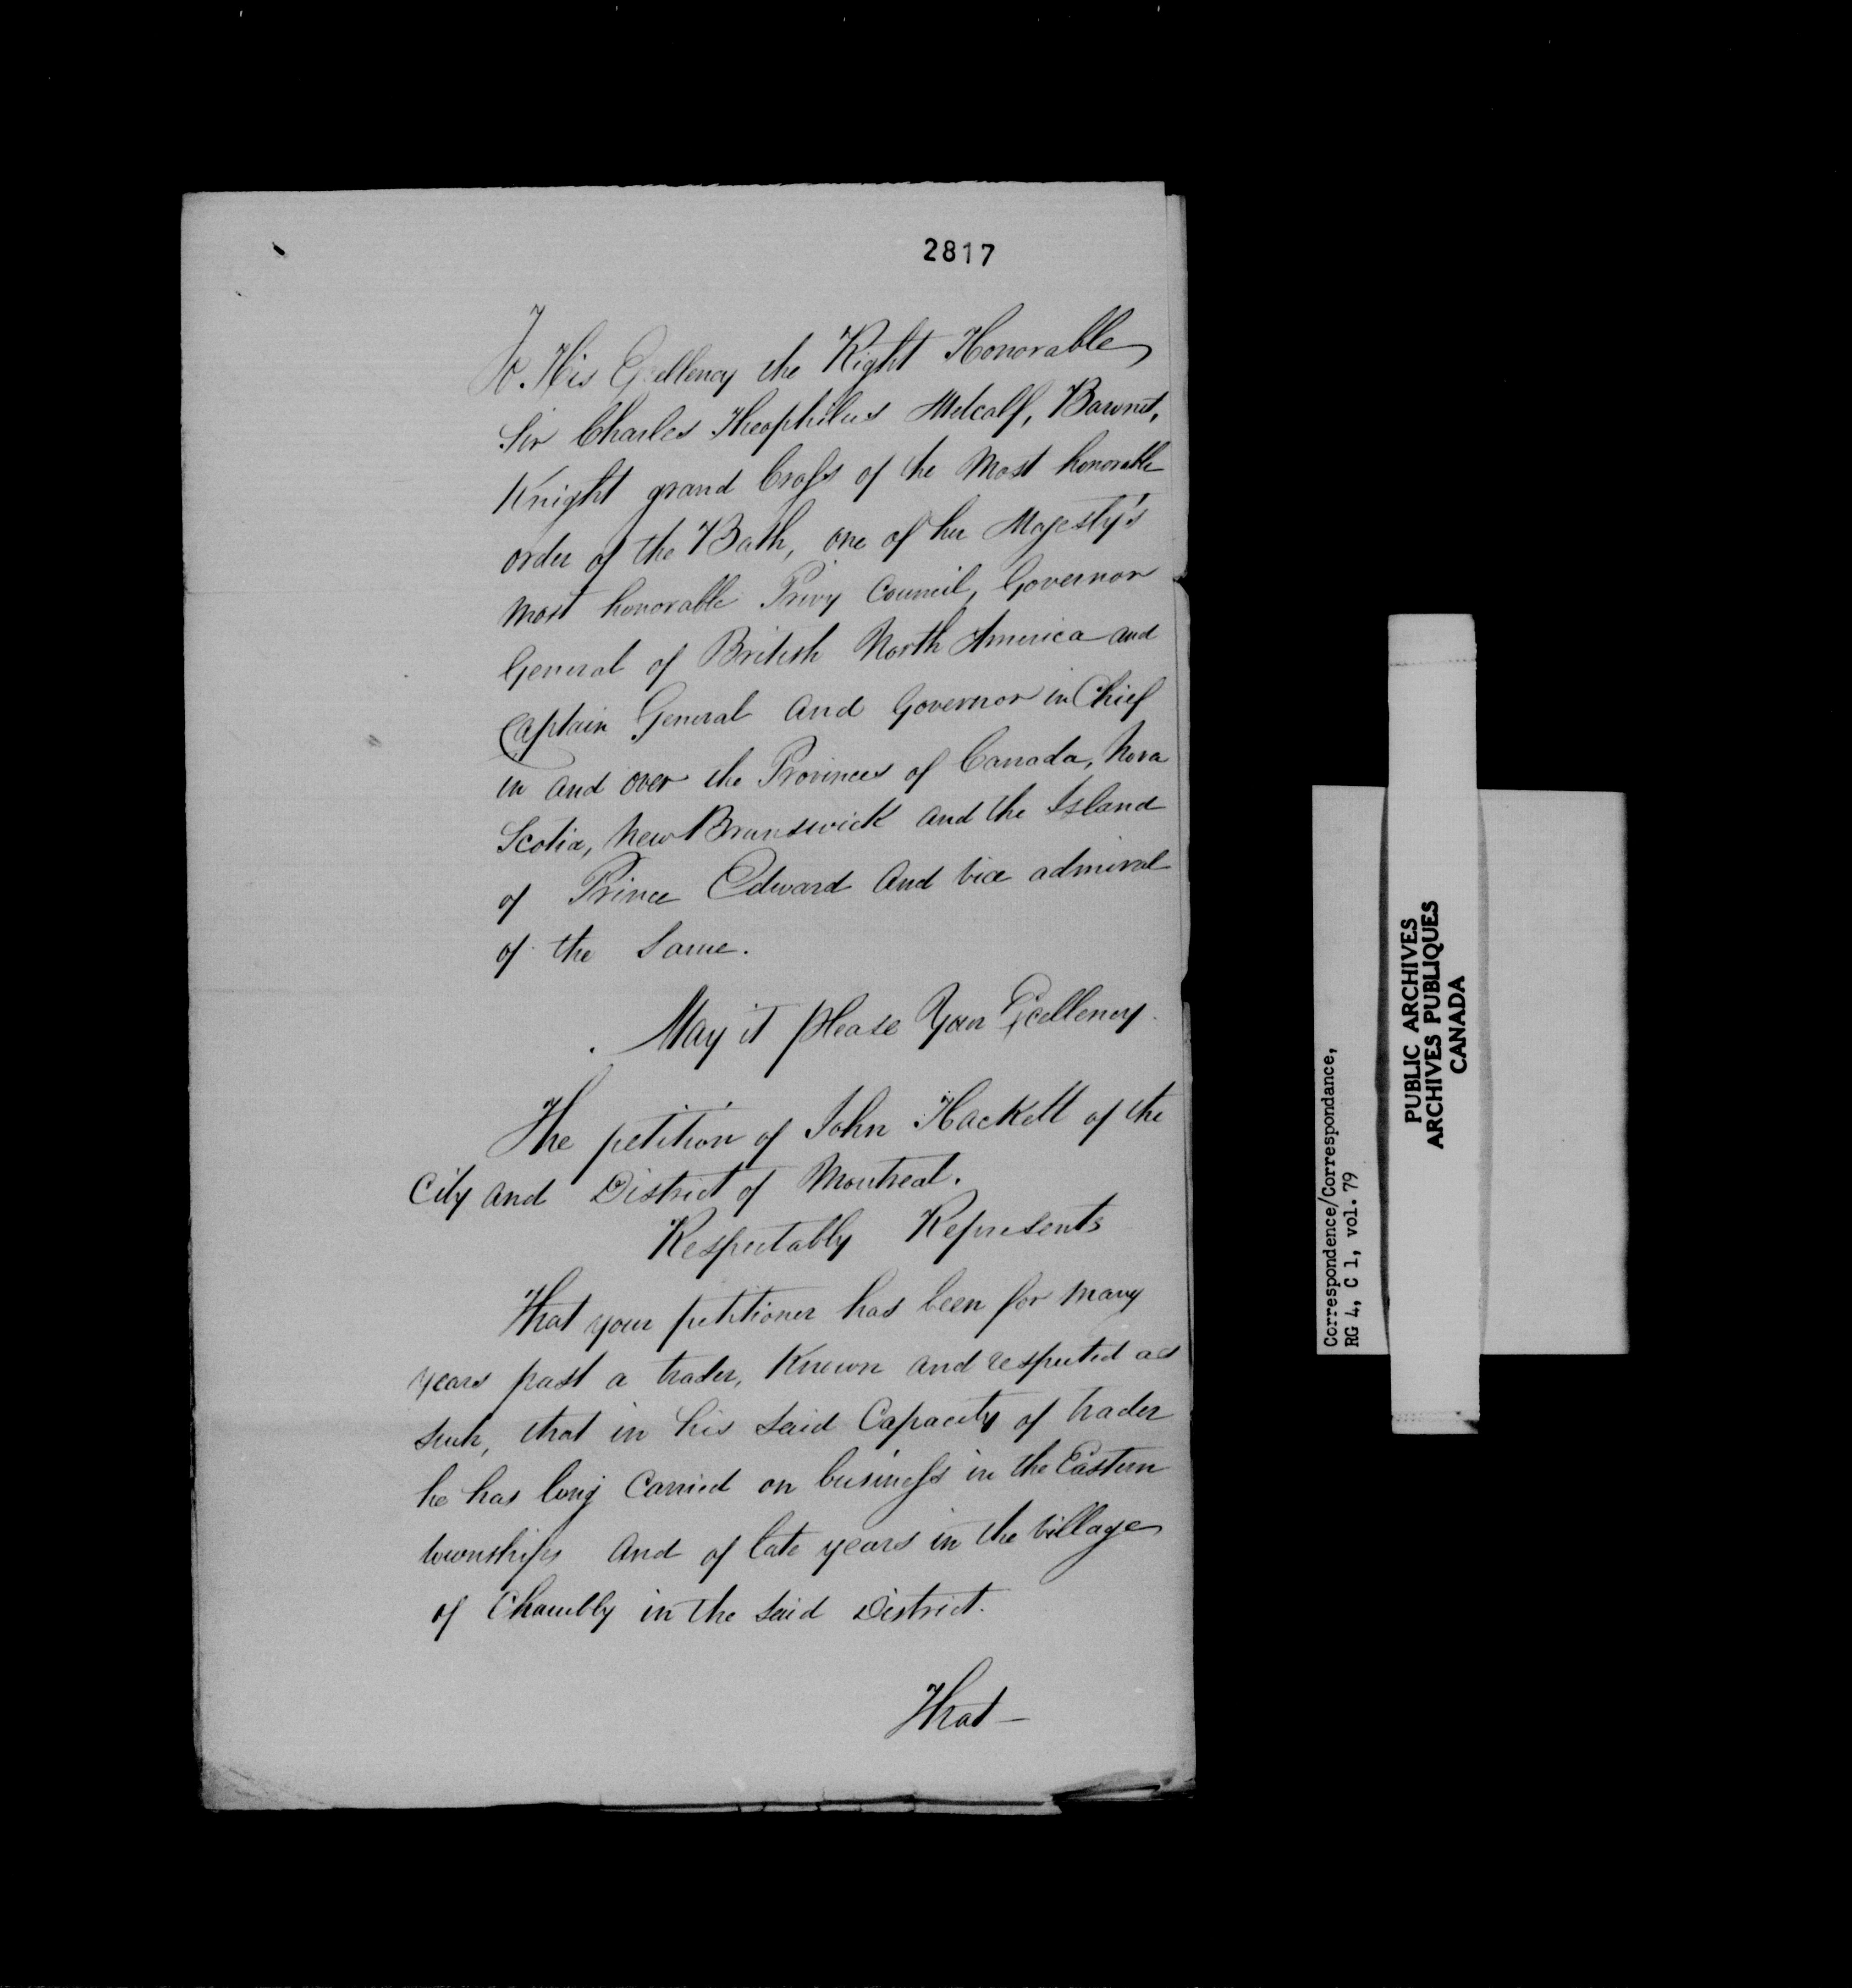 2817
To His Excellency the Right Honorable
Sir Charles Theophilus Metcalf, Baronet,
Knight grand Cross of the Most honorable
order of the Bath, one of her Majesty's
Most honorable Privy Council, Governor
General of British North America and
Captain General and Governor in Chief
in and over the Provinces of Canada, Nova
Scotia, New Brunswick and the Island
of Prince Edward and vice admiral
of the Same.
May it please Your Excellency.
The petition of John Hackett of the
City and District of Montreal.
Respectably Represents
That your petitioner has been for many
years past a trader, Known and respected as
such, that in his said Capacity of trader
he has long Carried on business in the Eastern
townships and of late years in the village
of Chambly in the said District.
That —
Correspondence/Correspondance,
RG 4, C 1, vol. 79
PUBLIC ARCHIVES
ARCHIVES PUBLIQUES
CANADA